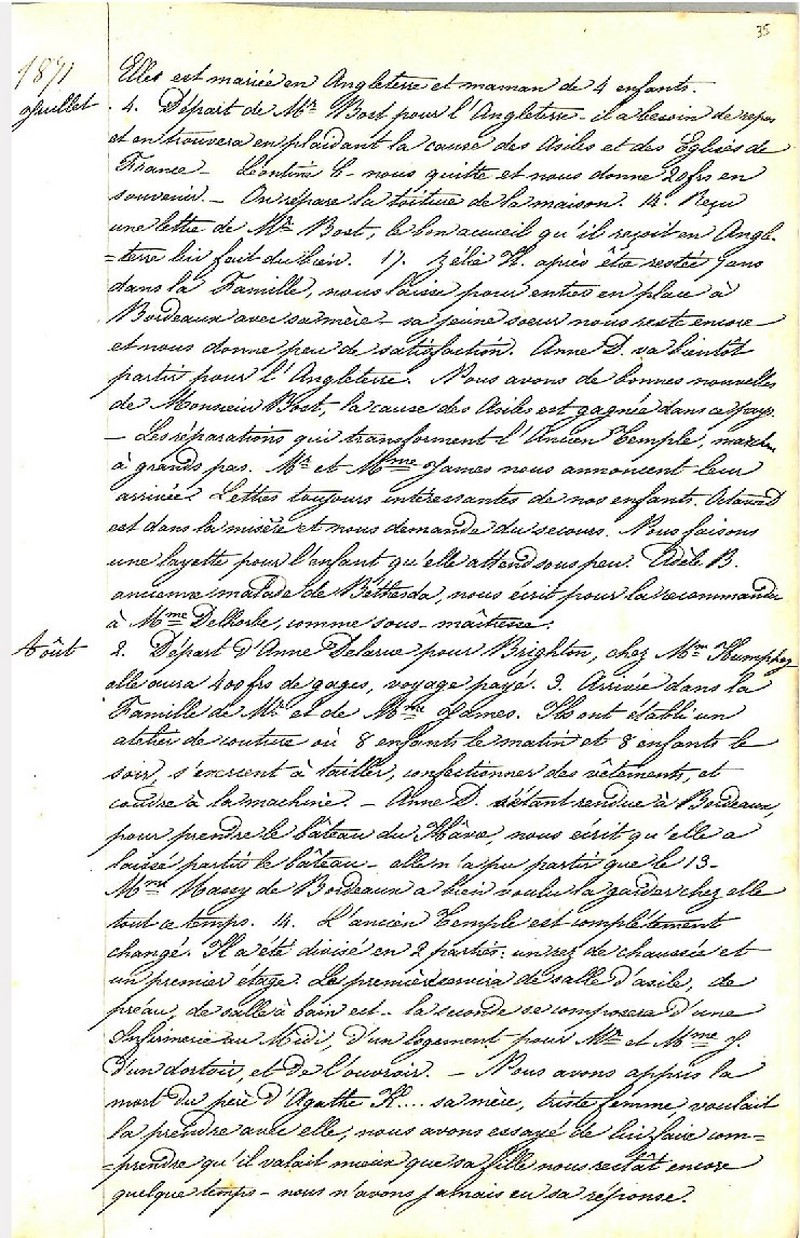 35
1871
Elles est mariée en Angleterre et maman de 4 enfants.
Juillet. 4. Départ de Mr Bost pour l'Angleterre - il a besoin de repos
et en trouvera en plaidant la cause des Asiles et des Eglises de
France - Léontine C - nous quitte et nous donne 20 frs en
souvenir. - On répare la toiture de la maison. 14. Reçu
une lettre de Mr Bost, le bon accueil qu'il reçoit en Angle-
=terre lui fait du bien. 17. Zélie H. après être restée 7 ans
dans la Famille, nous laisse pour entrer en place à
Bordeaux avec sa mère - sa jeune soeur nous reste encore
et nous donne peu de satisfaction. Anne D. va bientôt
partir pour l'Angleterre. Nous avons de bonnes nouvelles
de Monsieur Bost, la cause des Asiles est gagnée dans ce pays.
- Les réparations qui transforment l'Ancien Temple, marchent
à grands pas. Mr et Mme James nous annoncent leur
arrivée. Lettres toujours intéressantes de nos enfants. Octavie D
est dans la misère et nous demande du secours. Nous faisons
une layette pour l'enfant qu'elle attend sous peu. Adèle B.
ancienne malade de Béthesda, nous écrit pour la recommander
à Mme Delhorbe, comme sous-maîtresse.
Août 2. Départ d'Anne Delarue pour Brighton, chez Mme Humphrey
elle aura 400 frs de gages, voyage payé. 3. Arrivée dans la
Famille de Mr et de Mme James. Ils ont établi un
atelier de couture où 8 enfants le matin et 8 enfants le
soir, s'exercent à tailler, confectionner des vêtements, et
coudre à la machine. - Anne D. s'étant rendue à Bordeaux,
pour prendre le bâteau du Hâvre, nous écrit qu'elle a
laissé partir le bâteau - elle n'a pu partir que le 13 -
Mme Massy de Bordeaux a bien voulu la garder chez elle
tout ce temps. 14. L'ancien Temple est complètement
changé. Il a été divisé en 2 parties: un rez de chaussée et
un premier étage. Le premier servira de salle d'asile, de
préau, de salle à bain est - la seconde se composera d'une
Infirmerie au Midi, d'un logement pour Mr et Mme J.
d'un dortoir, et de l'ouvroir. - Nous avons appris la
mort du père d'Agathe K.... sa mère, triste femme, voulait
la prendre avec elle, nous avons essayé de lui faire com=
=prendre qu'il valait mieux que sa fille nous restât encore
quelque temps - nous n'avons jamais eu sa réponse.